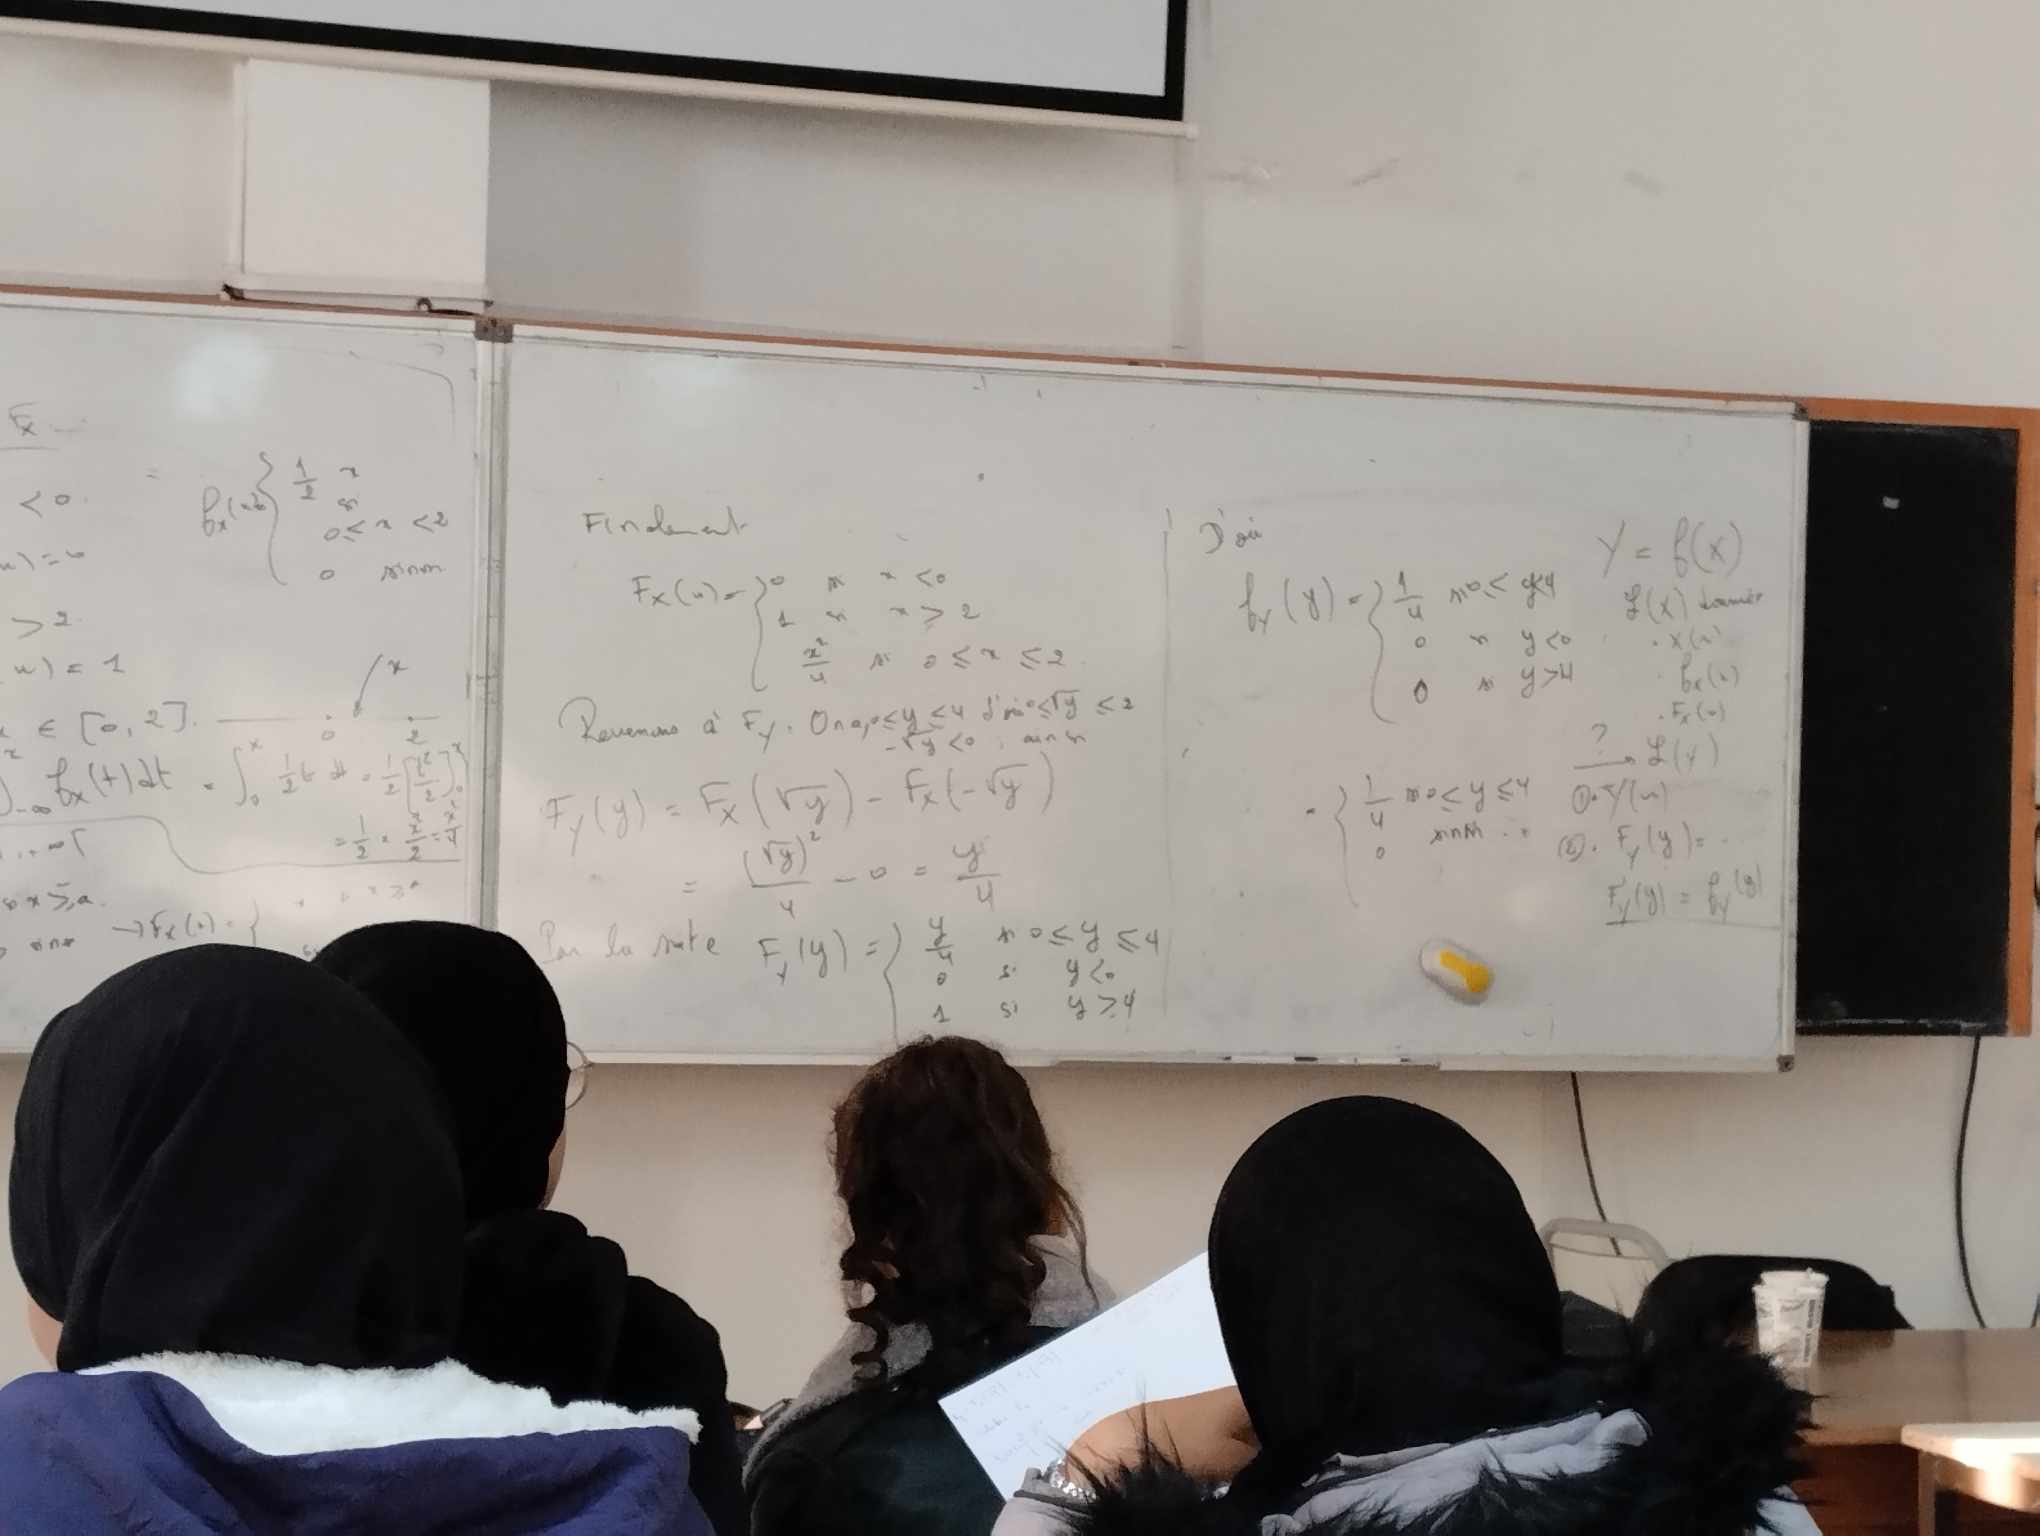 Fx
< 0.
fx(x) = { 1/2 x
si
0 ≤ x < 2
0 sinon
> 2.
= 1
x
0 2
x ∈ [0, 2].
∫-∞^x fx(t) dt = ∫0^x 1/2 t dt = 1/2 [t²/2]0^x
= 1/2 × x²/2 = x²/4
x ≥ a.
sinon → Fx(x) = {
Finalement
Fx(x) = { 0 si x < 0
1 si x > 2
x²/4 si 0 ≤ x ≤ 2
Revenons à Fy. On a, 0 ≤ y ≤ 4 d'où 0 ≤ √y ≤ 2
-√y < 0, ainsi
Fy(y) = Fx(√y) - Fx(-√y)
= (√y)²/4 - 0 = y/4
Par la suite Fy(y) = { y/4 si 0 ≤ y ≤ 4
0 si y < 0
1 si y ≥ 4
D'où
fy(y) = { 1/4 si 0 ≤ y < 4
0 si y < 0
0 si y > 4
= { 1/4 si 0 ≤ y ≤ 4
0 sinon
Y = f(X)
ℒ(X) donnée
. X(Ω)
. fx(x)
. Fx(x)
? → ℒ(Y)
①. Y(Ω)
②. Fy(y) = ...
F'y(y) = fy(y)